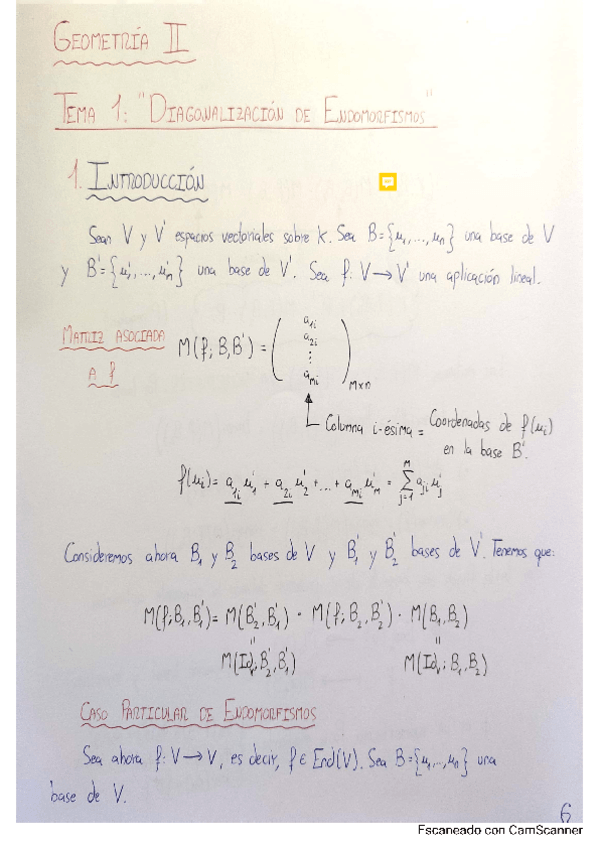 GEOMETRÍA II
TEMA 1: "DIAGONALIZACIÓN DE ENDOMORFISMOS"
1. INTRODUCCIÓN
Sean V y V' espacios vectoriales sobre K. Sea B={u₁,...,uₙ} una base de V
y B'={u'₁,...,u'ₘ} una base de V'. Sea f: V→V' una aplicación lineal.
MATRIZ ASOCIADA
A f
M(f; B,B') = (a₁ᵢ a₂ᵢ ⋮ aₘᵢ) m×n
Columna i-ésima = Coordenadas de f(uᵢ)
en la base B'.
f(uᵢ) = a₁ᵢ u'₁ + a₂ᵢ u'₂ + ... + aₘᵢ u'ₘ = Σⱼ₌₁ᵐ aⱼᵢ u'ⱼ
Consideremos ahora B₁ y B₂ bases de V y B'₁ y B'₂ bases de V'. Tenemos que:
M(f; B₁, B'₁) = M(B'₂, B'₁) · M(f; B₂, B'₂) · M(B₁, B₂)
M(Idᵥ'; B'₂, B'₁) M(Idᵥ; B₁, B₂)
CASO PARTICULAR DE ENDOMORFISMOS
Sea ahora f: V→V, es decir, f ∈ End(V). Sea B={u₁,...,uₙ} una
base de V.
6
Escaneado con CamScanner